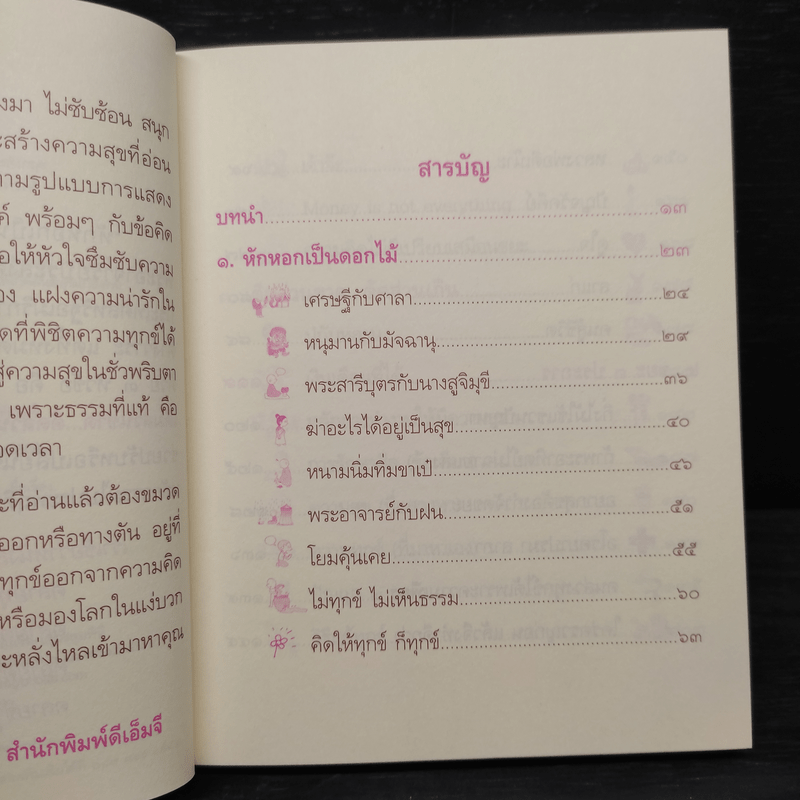 งมา ไม่ซับซ้อน สนุก
ะสร้างความสุขที่อ่อน
ามรูปแบบการแสดง
ค์ พร้อมๆ กับข้อคิด
อให้หัวใจซึมซับความ
อง แฝงความน่ารักใน
ดที่พิชิตความทุกข์ได้
สู่ความสุขในชั่วพริบตา
เพราะธรรมที่แท้ คือ
อดเวลา
ะที่อ่านแล้วต้องขมวด
ออกหรือทางตัน อยู่ที่
ทุกข์ออกจากความคิด
หรือมองโลกในแง่บวก
ะหลั่งไหลเข้ามาหาคุณ
สำนักพิมพ์ดีเอ็มจี
สารบัญ
บทนำ ๑๓
๑. หักหอกเป็นดอกไม้ ๒๓
เศรษฐีกับศาลา ๒๔
หนุมานกับมัจฉานุ ๒๙
พระสารีบุตรกับนางสูจิมุขี ๓๖
ฆ่าอะไรได้อยู่เป็นสุข ๔๐
หนามนิ่มทิ่มขาเป๋ ๔๖
พระอาจารย์กับฝน ๕๑
โยมคุ้นเคย ๕๕
ไม่ทุกข์ ไม่เห็นธรรม ๖๐
คิดให้ทุกข์ ก็ทุกข์ ๖๓